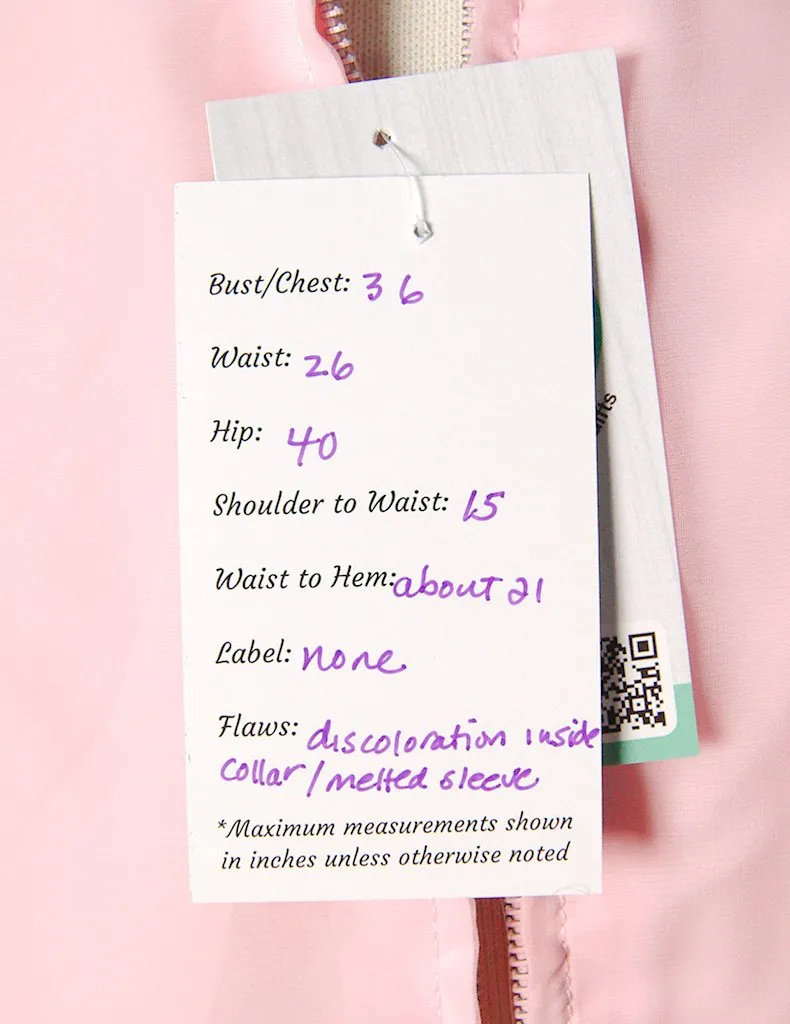 Bust/Chest: 36
Waist: 26
Hip: 40
Shoulder to Waist: 15
Waist to Hem: about 21
Label: none
Flaws: discoloration inside
collar/melted sleeve
*Maximum measurements shown
in inches unless otherwise noted